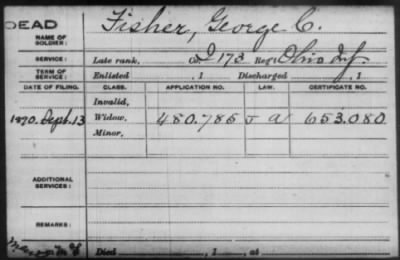 DEAD
NAME OF SOLDIER: Fisher, George C.
SERVICE: Late rank, Co. I 173 Reg't Ohio Inf
TERM OF SERVICE: Enlisted , 1 Discharged , 1
DATE OF FILING. CLASS. APPLICATION NO. LAW. CERTIFICATE NO.
Invalid,
1890. Sept. 13 Widow, 480.785 J a 653.080
Minor,
ADDITIONAL SERVICES:
REMARKS:
Died , 1 , at